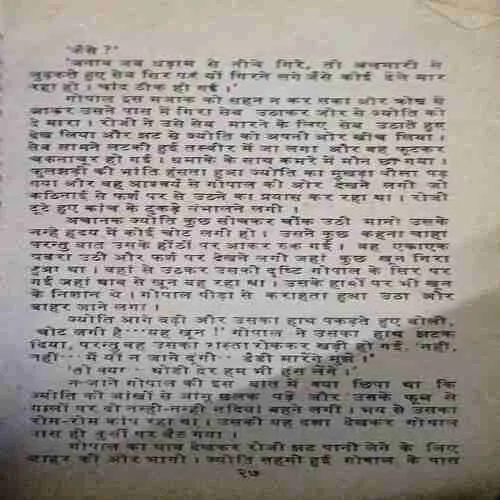 'कैसे ?'
'जनाब जब धड़ाम से नीचे गिरे, तो अलमारी से
लुढ़कते हुए सेब सिर पर यों गिरने लगे जैसे कोई ढेले मार
रहा हो । चांद ठीक हो गई ।'
गोपाल इस मजाक को सहन न कर सका और क्रोध में
आकर उसने पास में गिरा सेब उठाकर जोर से ज्योति को
दे मारा । रोजी ने उसे सेब मारने के लिए सेब उठाते हुए
देख लिया और झट से ज्योति को अपनी ओर खींच लिया ।
सेब सामने लटकी हुई तस्वीर में जा लगा और वह फूटकर
चकनाचूर हो गई । धमाके के साथ कमरे में मौन छा गया ।
फुलझड़ी की भांति हंसता हुआ ज्योति का मुखड़ा पीला पड़
गया और वह आश्चर्य से गोपाल की ओर देखने लगी जो
कठिनाई से फर्श पर से उठने का प्रयास कर रहा था । रोजी
टूटे हुए कांच के टुकड़े संभालने लगी ।
अचानक ज्योति कुछ सोचकर चौंक उठी मानो उसके
नन्हे हृदय में कोई चोट लगी हो । उसने कुछ कहना चाहा
परन्तु बात उसके होंठों पर आकर रुक गई । वह एकाएक
घबरा उठी और फर्श पर देखने लगी जहां कुछ खून गिरा
हुआ था । वहां से उठकर उसकी दृष्टि गोपाल के सिर पर
गई जहां घाव से खून बह रहा था । उसके हाथों पर भी खून
के निशान थे । गोपाल पीड़ा से कराहता हुआ उठा और
बाहर जाने लगा ।
ज्योति आगे बढ़ी और उसका हाथ पकड़ते हुए बोली,
'चोट लगी है···यह खून !!' गोपाल ने उसका हाथ झटक
दिया, परन्तु वह उसका रास्ता रोककर खड़ी हो गई, 'नहीं,
नहीं···मैं यों न जाने दूंगी··· डैडी मारेंगे मुझे ।'
'तो क्या··· थोड़ी देर हम भी हंस लेंगे ।'
न-जाने गोपाल की इस बात में क्या छिपा था कि
ज्योति की आंखों से आंसू छलक पड़े और उसके फूल से
गालों पर दो नन्ही-नन्ही नदियां बहने लगीं । भय से उसका
रोम-रोम कांप रहा था । उसकी यह दशा देखकर गोपाल
पास ही कुर्सी पर बैठ गया ।
गोपाल का घाव देखकर रोजी झट पानी लेने के लिए
बाहर की ओर भागी । ज्योति सहमी हुई गोपाल के पास
२७